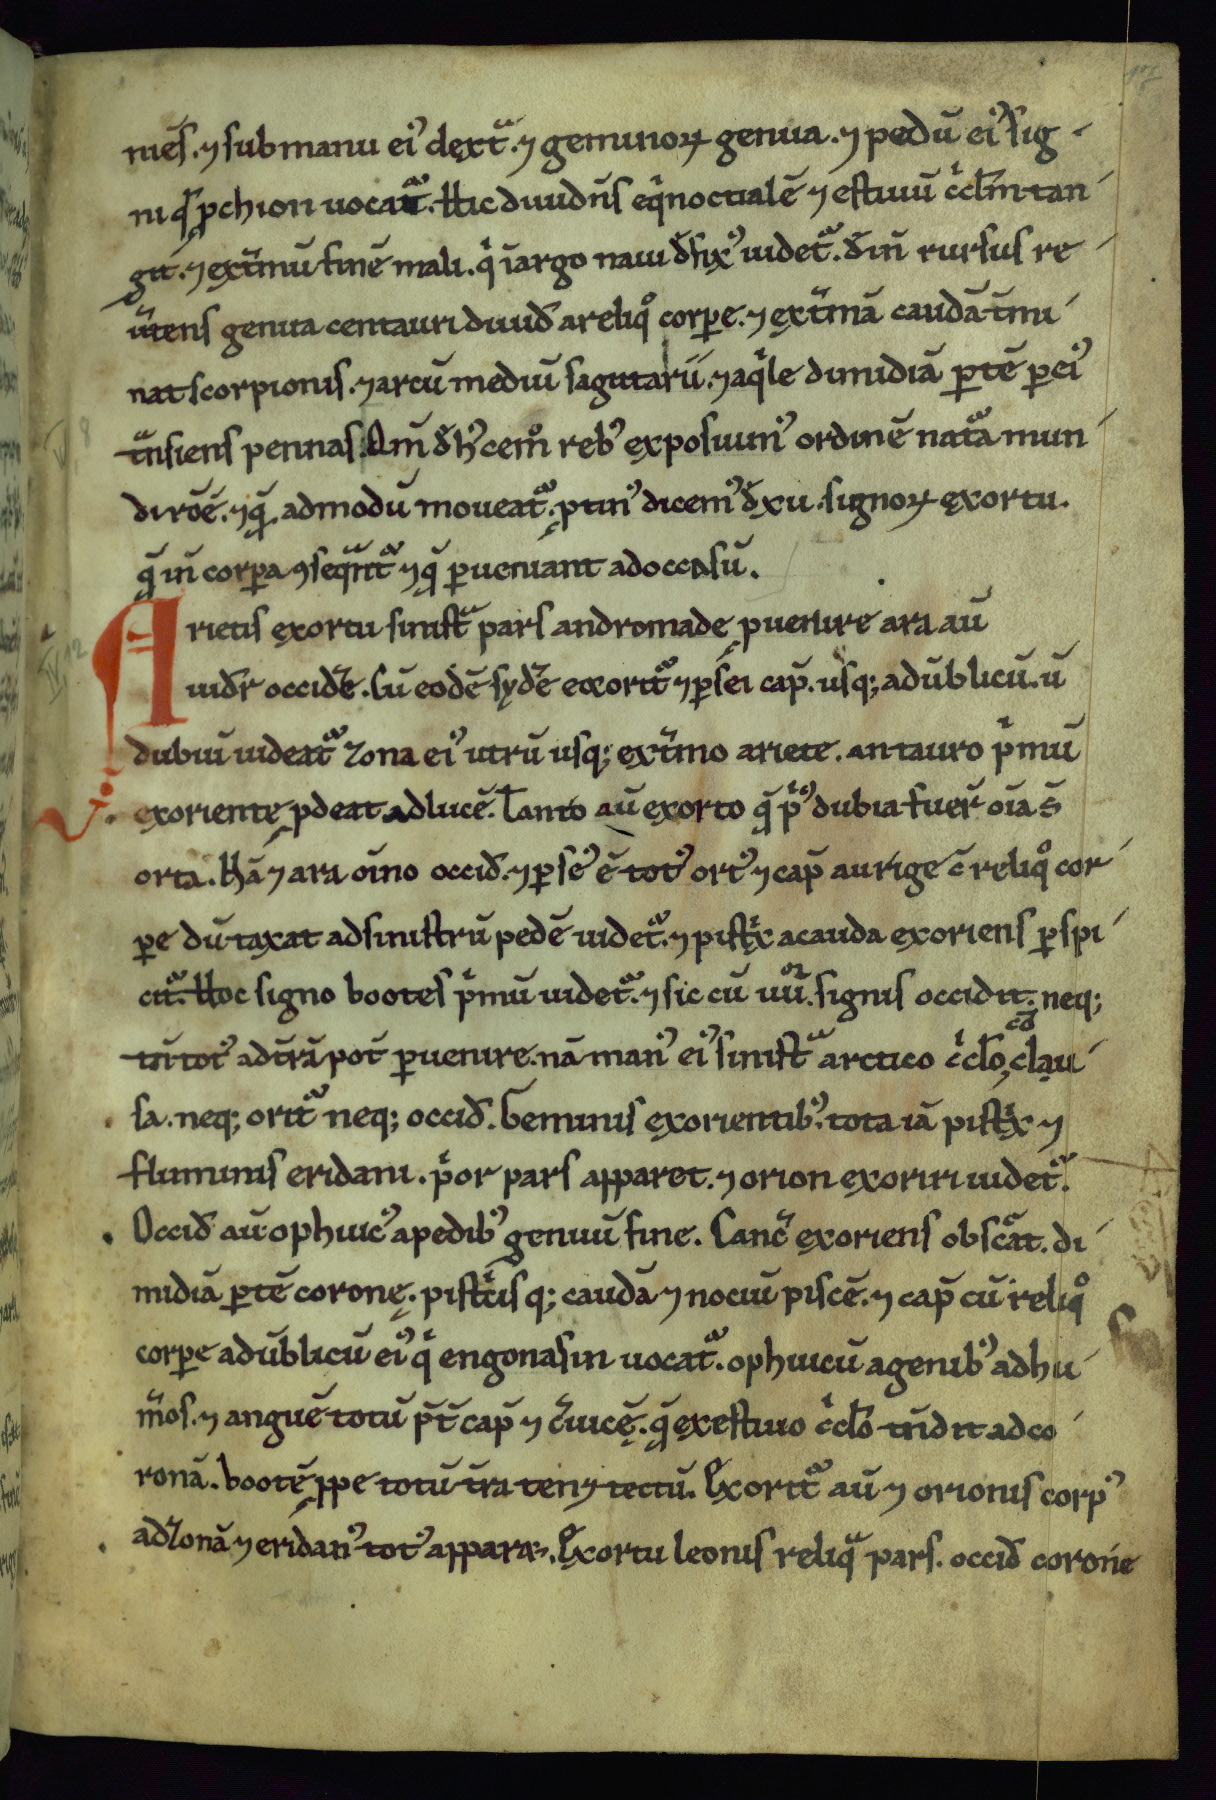 niēs. ⁊ sub manu eiꝰ dext͛. ⁊ geminoꝝ genua. ⁊ pedū eiꝰ sig-
ni q̄ p̄chion uocat͛. Hic diuidn̄s eqͥnoctialē ⁊ estiuū cͥcl̄m tan-
git. ⁊ ext͛mū finē mali. qͥ ī argo naui d̄fixꝰ uidet͛. d̄in̄ rursus re-
ūtens genua centauri diuid̄ a reliq̊ corꝑe. ⁊ ext͛mā caudā t̄mi-
nat scorpionis. ⁊ arcū mediū sagittarii. ⁊ aqͥle dimidiā ꝑtē ꝑ eiꝰ
t͛nsiens pennas. Qm̄ d̄ hꝰcem̊ rebꝰ exposuimꝰ ordinē nat͛a mun-
di rōē. ⁊ q̄ admodū moueat͛. ꝓtinꝰ dicemꝰ d̄ xii. signoꝝ exortu.
q̄ in̄ corꝑa ꝯseq̄nt͛ ⁊ q̄ ꝑueniant ad occasū.
Arietis exortu sinist͛ pars andromade ꝑuenire ara aū
uid̄r occid̄e. Cū eodē syd̄e exorit͛ ⁊ ꝑsei cap̄. usq; ad ūblicū. ū
dubiū uideat͛ zona eiꝰ utrū usq; ext͛mo ariete. an tauro pͥmū
exoriente ꝓdeat ad lucē. Tanto aū exorto q̄ pͥꝰ dubia fuer̄ oīa s̄
orta. Nā ⁊ ara oīno occid̄. ⁊ ꝑseꝰ ē totꝰ ortꝰ ⁊ cap̄ aurige c̄ reliq̊ cor-
ꝑe dū taxat ad sinistrū pedē uidet͛. ⁊ pistͥx a cauda exoriens ꝑspi-
cit͛. Hoc signo bootes pͥmū uidet͛. ⁊ sic cū iiiior. signis occidit. neq;
tn̄ totꝰ ad t̄rā pot̄ ꝑuenire. nā manꝰ eiꝰ sinist͛ arctico cͥcl̄o, clau-
sa. neq; orit͛ neq; occid̄. Geminis exorientibꝰ. tota iā pistͥx ⁊
fluminis eridani. pͥor pars apparet. ⁊ orion exoriri uidet͛.
Occid̄ aū ophiucꝰ a pedibꝰ genuū fine. Canc̄ exoriens obsc͛at. di-
midiā ꝑtē corone. pistͥcis q; caudā ⁊ nociū piscē. ⁊ cap̄ cū reliq̊
corꝑe ad ūblicū eiꝰ qͥ engonasin uocat͛. ophiucū a genibꝰ ad hu-
m̄os. ⁊ anguē totū p̄t̄ cap̄ ⁊ c̄uicē. q̄ ex estiuo cͥcl̄o tn̄dit ad co-
ronā. bootē ꝓpe totū t̄ra ten⁊ tectū. Exorit͛ aū ⁊ orionis corpꝰ
ad zonā ⁊ eridanꝰ totꝰ apparæ. Exortu leonis reliq͛ pars. occid̄ corone